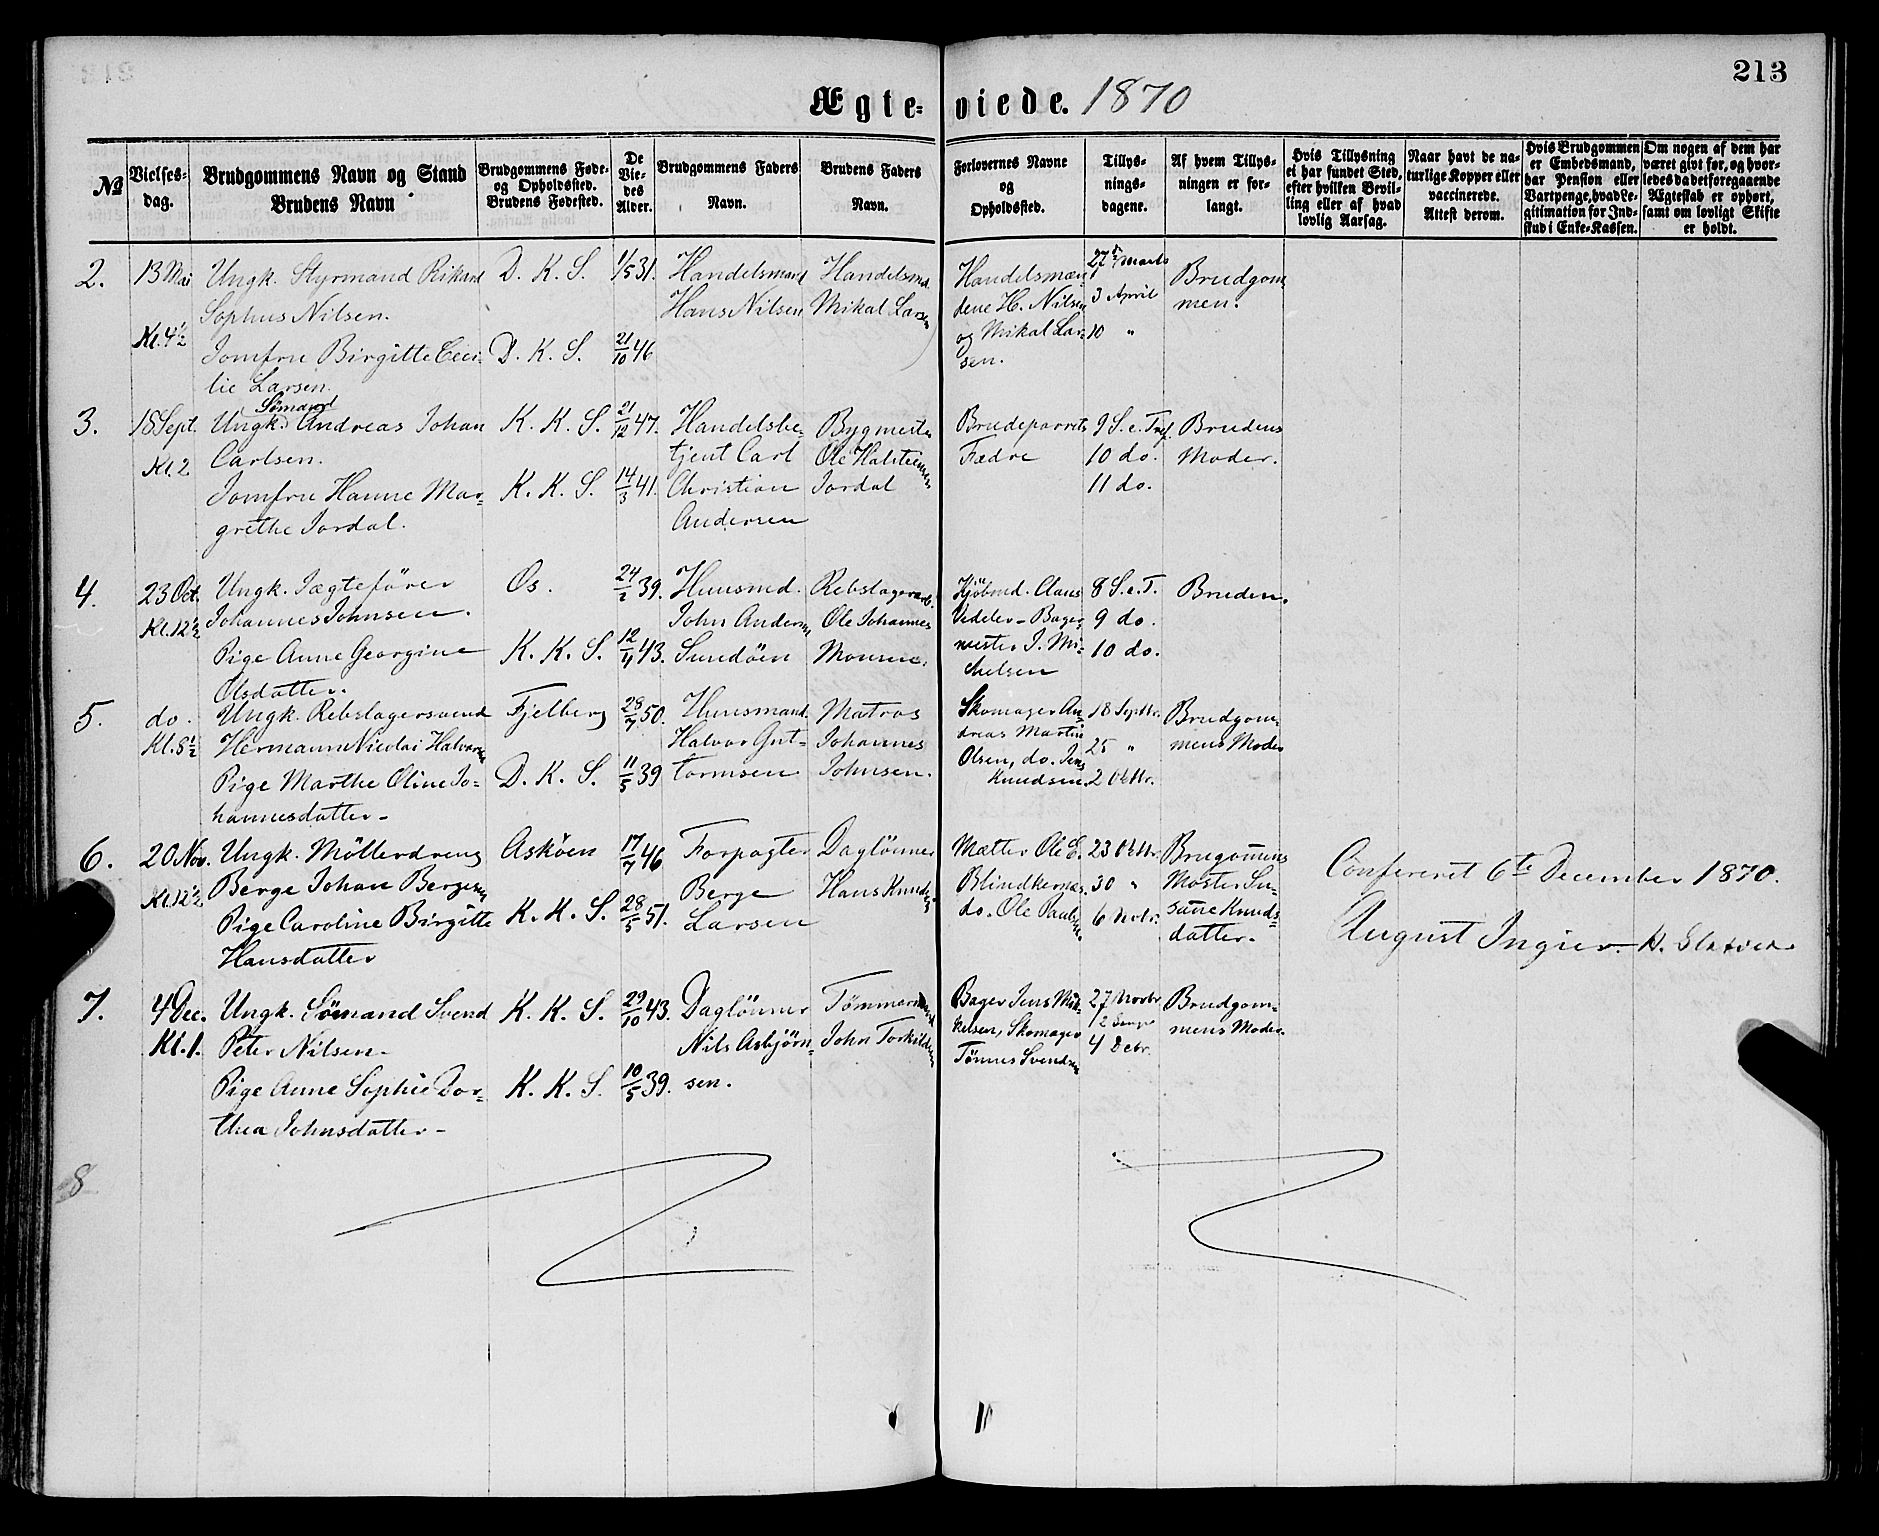 213
Ægteviede. 1870
№
Vielsesdag.
Brudgommens Navn og Stand
Brudens Navn
Brudgommens Føde- og Opholdssted.
Brudens Fødested.
De Viedes Alder.
Brudgommens Faders Navn.
Brudens Faders Navn.
Forlovernes Navne og Opholdsted.
Tillysningsdagene.
Af hvem Tillysningen er forlangt.
Hvis Tillysning ei har fundet Sted, efter hvilken Bevilling eller af hvad lovlig Aarsag.
Naar havt de naturlige Kopper eller vaccinerede. Attest derom.
Hvis Brudgommen er Embedsmand, har Pension eller Vartpenge, hvad Legitimation for Indskud i Enke-Kassen.
Om nogen af dem har været givt før, og hvorledes da det foregaaende Ægteskab er ophørt, samt om lovligt Skifte er holdt.
2.
13 Mai
Kl. 4½
Ungk. Styrmand Rikard
Sophus Nilsen.
Jomfru Birgitte Ceci-
lie Larsen.
D. K. S.
D. K. S.
1/5 31.
21/10 46
Handelsmand
Hans Nilsen
Handelsmd.
Mikal Larsen
Handelsmæn
dene H. Nilsen
og Mikal Lar-
sen.
27 Marts
3 April
10 "
Brudgom
men.
3.
18 Sept.
Kl. 2
Sømand
Ungk. Andreas Johan
Carlsen.
Jomfru Hanne Mar-
grethe Jordal.
K. K. S.
K. K. S.
21/12 47.
14/3 41.
Handelsbe-
tjent Carl
Christian
Andersen
Bygmester
Ole Halsteinsen
Jordal
Brudeparrets
Fædre
9 S. e. Tref.
10 do.
11 do.
Brudens
Moder.
4.
23 Oct.
Kl. 12½
Ungk. Jægtefører
Johannes Johnsen.
Pige Anne Georgine
Olsdatter.
Os.
K. K. S.
24/2 39.
12/4 43.
Huusmd.
John Andersen
Sundöen
Rebslagerarb.
Ole Johannes
Monsen.
Kjöbmd. Claus
Vedeler - Bager
mester J. Mi-
chelsen
8 S. e. T.
9 do.
10 do.
Bruden.
5.
do.
Kl. 5½
Ungk. Rebslagersvend
Hermann Nicolai Halvorsen
Pige Marthe Oline Jo-
hannesdatter -
Fjelberg
D. K. S.
28/7 50.
11/5 39
Huusmand
Halvor Gut-
tormsen
Matros
Johannes
Johnsen.
Skomager An-
dreas Martin
Olsen, do. Jens
Knudsen.
18 Septbr.
25 "
2 Oktbr.
Brudgom-
mens Moder
6.
20 Nov.
Kl. 12½
Ungk. Möllerdreng
Berge Johan Bergesen
Pige Caroline Birgitte
Hansdatter
Asköen
K. K. S.
17/7 46
28/5 51.
Forpagter
Berge
Larsen
Daglönner
Hans Knudsen
Mætter Ole E.
Blindkernæs.
do. Ole Paulsen
23 Oktbr.
30 "
6 Novbr.
Brugomens
Moster Su-
sane Knuds-
datter.
Confereret 6te December 1870.
August Ingier.
7.
4 Dec.
Kl. 1.
Ungk. Sømand Svend
Peter Nilsen.
Pige Anne Sophie Dor-
thea Johnsdatter -
K. K. S.
K. K. S.
29/10 43.
10/5 39.
Daglönner
Nils Asbjörn-
sen.
Tömmermand
John Torkildsen
Bager Jens Mik-
kelsen, Skomager
Tönnes Svendsen
27 Novbr.
4 Debr.
Brudgom-
mens Moder.
8